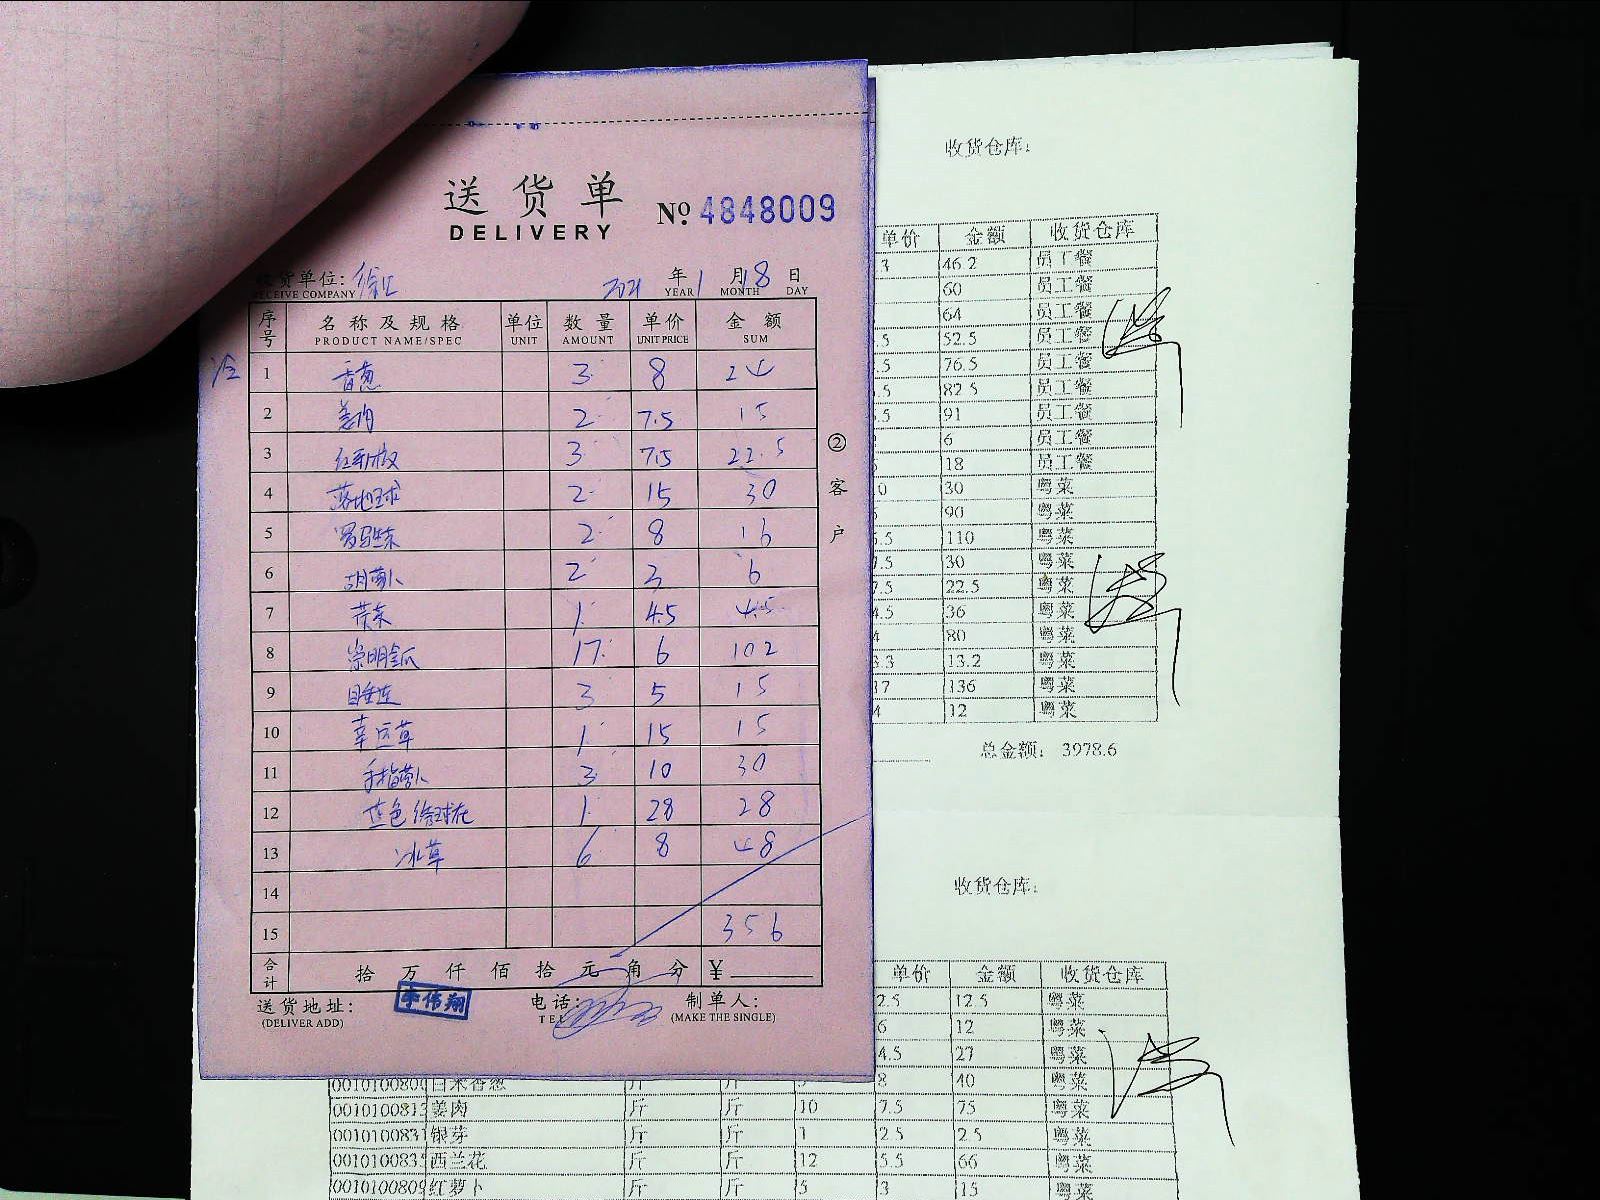 送货单
DELIVERY
№ 4848009
收货单位: 徐汇 2021 年 1 月 18 日
RECEIVE COMPANY YEAR MONTH DAY
序号 名称及规格 单位 数量 单价 金额
PRODUCT NAME/SPEC UNIT AMOUNT UNIT PRICE SUM
冷
1 香葱 3 8 24
2 姜肉 2 7.5 15
3 3 7.5 22.5
4 落地球 2 15 30
5 罗马生菜 2 8 16
6 胡萝卜 2 3 6
7 芹菜 1 4.5 4.5
8 崇明金瓜 17 6 102
9 睡莲 3 5 15
10 幸运草 1 15 15
11 手指萝卜 3 10 30
12 蓝色绣球花 1 28 28
13 冰草 6 8 48
14
15 356
合计 拾 万 仟 佰 拾 元 角 分 ¥
送货地址: 李伟翔 电话: 制单人:
(DELIVER ADD) TEL (MAKE THE SINGLE)
② 客户
收货仓库:
单价 金额 收货仓库
3 46.2 员工餐
60 员工餐
64 员工餐
.5 52.5 员工餐
.5 76.5 员工餐
.5 82.5 员工餐
.5 91 员工餐
6 员工餐
18 员工餐
0 30 粤菜
90 粤菜
5.5 110 粤菜
7.5 30 粤菜
7.5 22.5 粤菜
4.5 36 粤菜
4 80 粤菜
3.3 13.2 粤菜
17 136 粤菜
4 12 粤菜
总金额: 3978.6
收货仓库:
单价 金额 收货仓库
2.5 12.5 粤菜
6 12 粤菜
4.5 27 粤菜
8 40 粤菜
0010100813 姜肉 斤 斤 10 7.5 75 粤菜
0010100831 银芽 斤 斤 1 2.5 2.5 粤菜
001010083 西兰花 斤 斤 12 5.5 66 粤菜
0010100809 红萝卜 斤 斤 5 3 15 粤菜